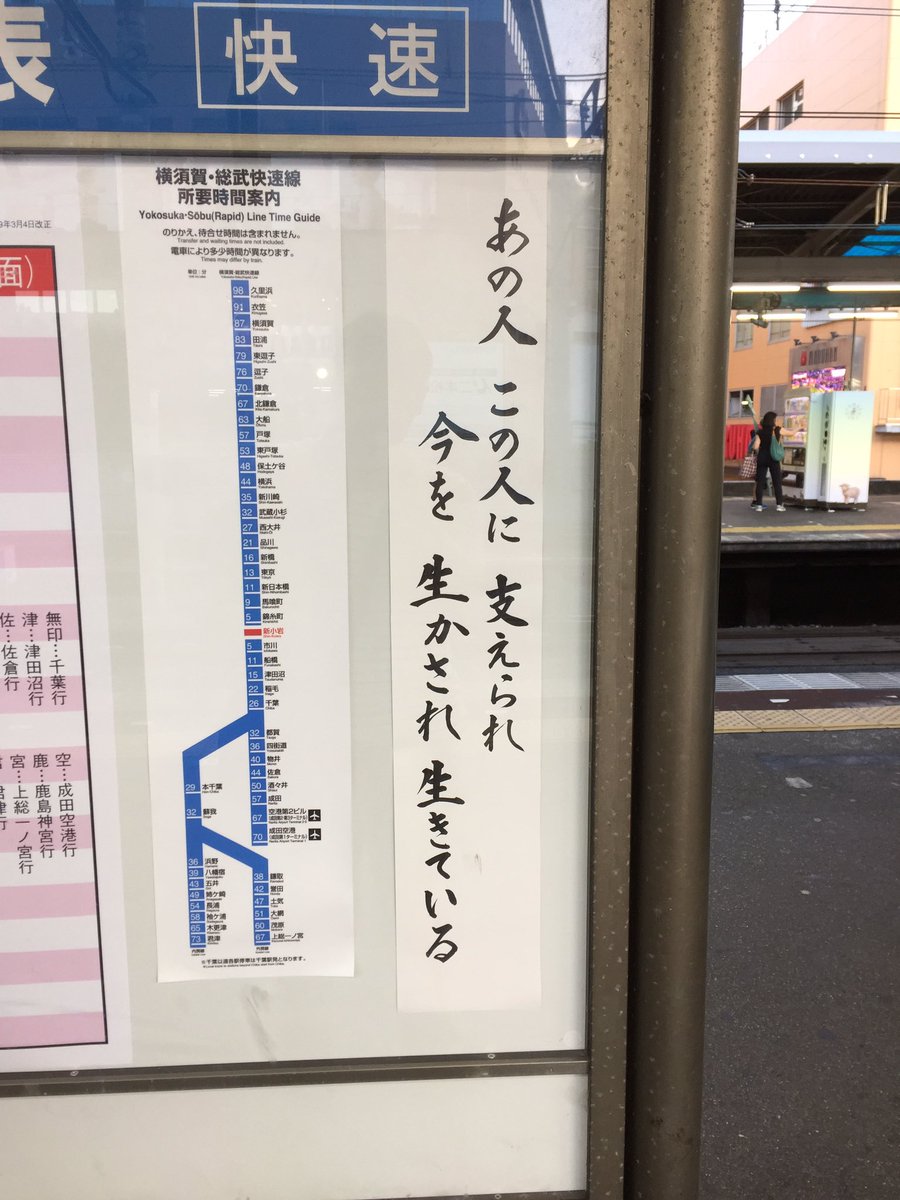 表 快速
9年3月4日改正
面)
無印…千葉行
津…津田沼行
佐…佐倉行
空…成田空港行
鹿…鹿島神宮行
宮…上総一ノ宮行
君津行
横須賀・総武快速線
所要時間案内
Yokosuka-Sōbu(Rapid) Line Time Guide
のりかえ、待合せ時間は含まれません。
Transfer and waiting times are not included.
電車により多少時間が異なります。
Times may differ by train.
単位:分 横須賀・総武快速線
98 久里浜
91 衣笠
87 横須賀
83 田浦
79 東逗子
76 逗子
70 鎌倉
67 北鎌倉
63 大船
57 戸塚
53 東戸塚
48 保土ケ谷
44 横浜
35 新川崎
32 武蔵小杉
27 西大井
21 品川
16 新橋
13 東京
11 新日本橋
9 馬喰町
5 錦糸町
新小岩
5 市川
11 船橋
15 津田沼
22 稲毛
26 千葉
32 都賀
36 四街道
40 物井
44 佐倉
50 酒々井
57 成田
67 空港第2ビル
70 成田空港
29 本千葉
32 蘇我
36 浜野
39 八幡宿
43 五井
49 姉ケ崎
54 長浦
58 袖ケ浦
65 木更津
73 君津
38 鎌取
42 誉田
47 土気
51 大網
60 茂原
67 上総一ノ宮
※千葉以遠各駅停車は千葉駅発となります。
あの人 この人に 支えられ
今を 生かされ 生きている